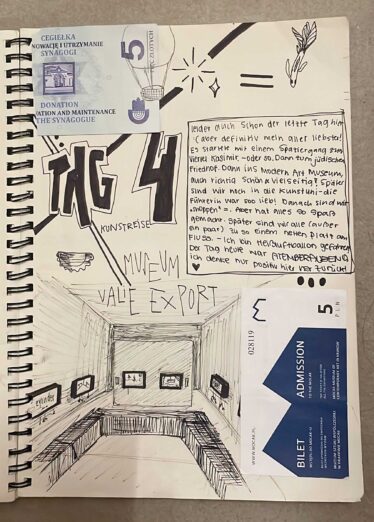 CEGIEŁKA
NOWACJĘ I UTRZYMANIE
SYNAGOGI
5
ZŁOTYCH
DONATION
ATION AND MAINTENANCE
THE SYNAGOGUE
TAG 4
KUNSTREISE
leider auch schon der letzte Tag hier
(aber definitiv mein aller liebster!
Es startete mit einem Spaziergang zum
Viertel - oder so. Dann zum jüdischen
Friedhof. Dann ins Modern Art Museum,
auch richtig schön & vielseitig! Später
sind wir noch in die Kunstuni - die
Führerin war soo lieb! Danach sind wir
"shoppen". Aber hat alles so Spaß
gemacht. Später sind wir alle (außer
ein paar) zu so einem netten Platz am
FLUSS. - Ich bin Heißluftballon gefahren
Der Tag heute war ATEMBERAUBEND
ich denke nur positiv hier her zurück!
MUSEUM
VALIE EXPORT
028119
5
PLN
BILET
ADMISSION
WSTĘPU DO MOCAK-U
TO THE MOCAK
WWW.MOCAK.PL
MUZEUM SZTUKI WSPÓŁCZESNEJ
W KRAKOWIE MOCAK
MOCAK MUSEUM OF
CONTEMPORARY ART IN KRAKOW